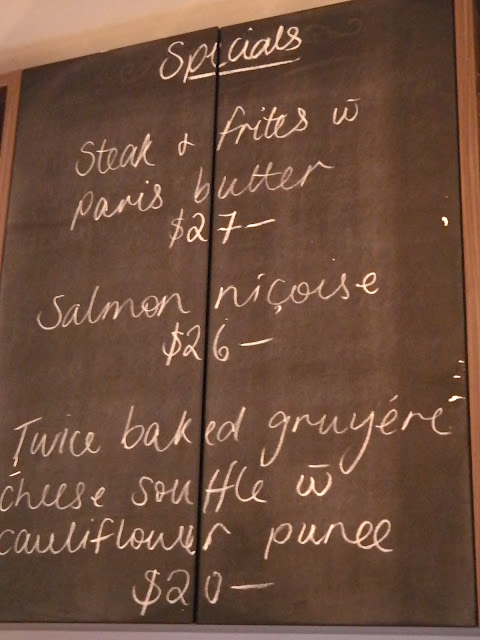 Specials
Steak & frites w̄
paris butter
$27—
Salmon niçoise
$26—
Twice baked gruyére
cheese souffle w̄
cauliflower puree
$20—